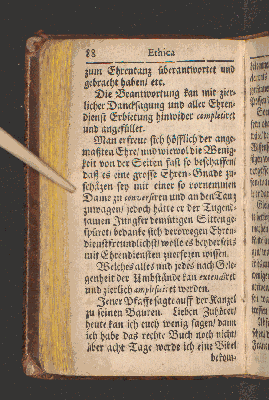 88 Ethica
zum Ehrentanz überantwortet und
gebracht haben/ etc.
Die Beantwortung kan mit zier-
licher Dancksagung und aller Ehren-
dienst Erbietung hinwider completiret
und angefüllet.
Man erfreue sich höfflich der ange-
maßten Ehre/ und wiewol die Wenig-
keit von der Seiten fast so beschaffen/
daß es eine grosse Ehren-Gnade zu
schätzen sey mit einer so vornemmen
Dame zu conversiren und an den Tantz
zuwagen/ jedoch hätte er der Tugend-
samen Jungfer demütigen Sitten ge-
spüret; bedancke sich derowegen Ehren-
dienstfreundlichst/ wolle es beyderseits
mit Ehrendiensten zuersetzen wissen.
Welches alles und jedes nach Gele-
genheit der Umbstände kan extendiret
und zierlich amplificiret werden.
Jener Pfaffe sagte auff der Kanzel
zu seinen Bauren. Lieben Zuhörer/
heute kan ich euch wenig sagen/ dann
ich habe das rechte Buch noch nicht/
über acht Tage werde ich eine Bibel
bekom-